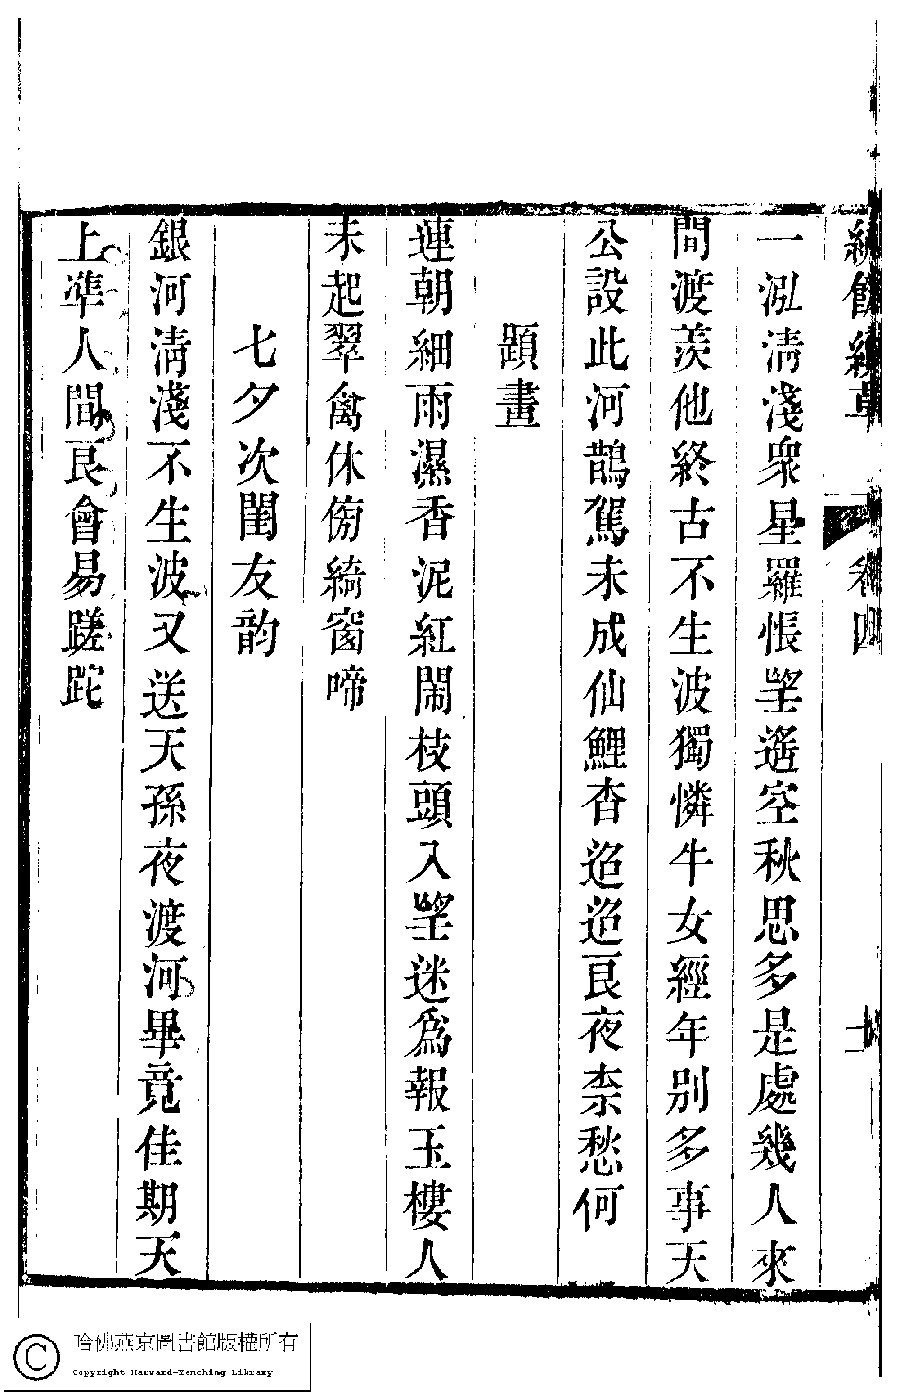 繡餘續草 卷四
一泓清淺衆星羅悵望遙空秋思多是處幾人來
間渡羨他終古不生波獨憐牛女經年別多事天
公設此河鵲駕未成仙鯉杳迢迢良夜柰愁何
題畫
連朝細雨濕香泥紅鬧枝頭入望迷爲報玉樓人
未起翠禽休傍綺窗啼
七夕次閨友韵
銀河清淺不生波又送天孫夜渡河畢竟佳期天
上準人間良會易蹉跎
哈佛燕京圖書館版權所有
Copyright Harvard-Yenching Library